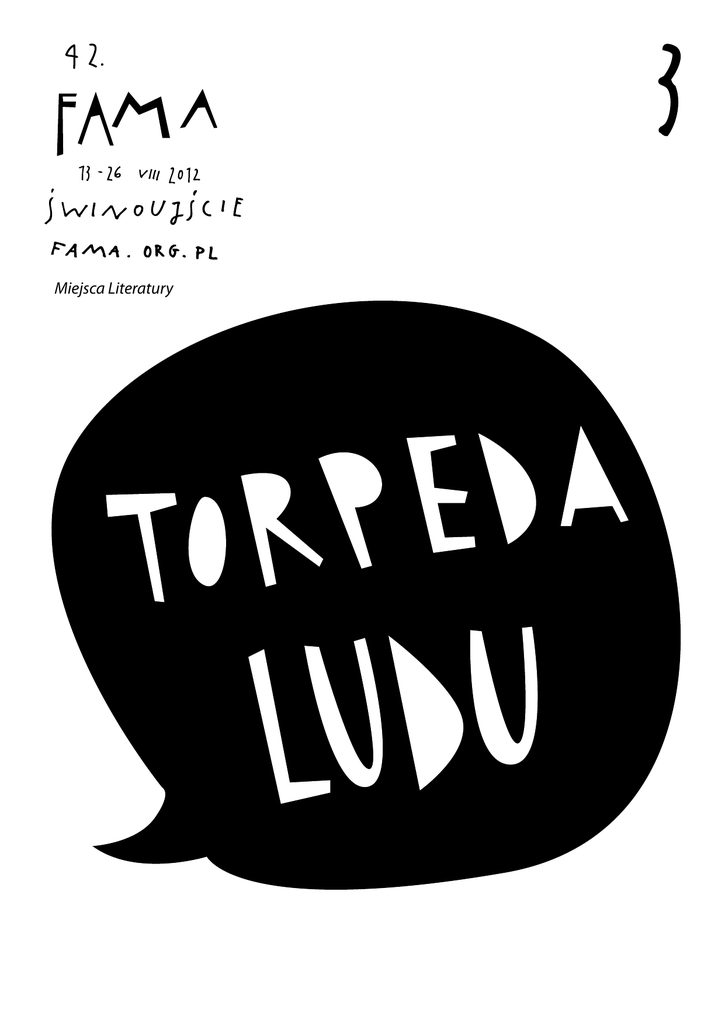 42.
FAMA
13-26 VIII 2012
ŚWINOUJŚCIE
FAMA.ORG.PL
Miejsca Literatury
3
TORPEDA
LUDU